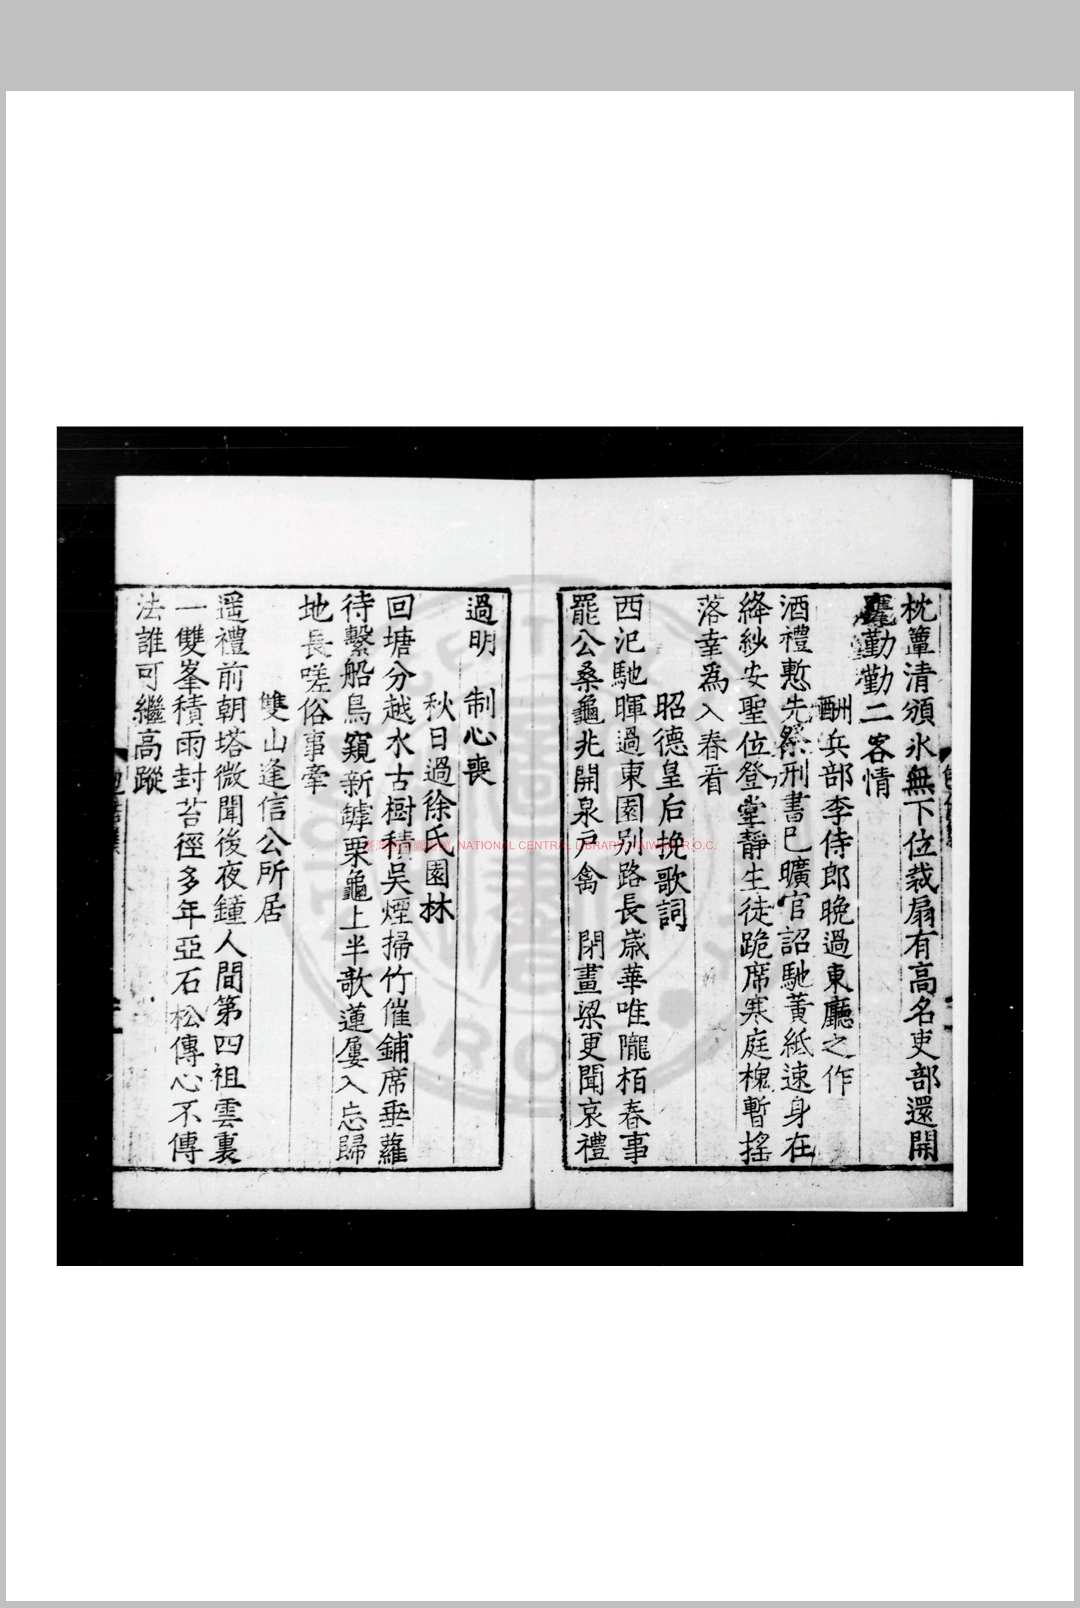 枕簟清頒氷無下位裁扇有高名吏部還開
甕勤勤二客情
酬兵部李侍郎晚過東廳之作
酒禮慙先祭刑書已曠官詔馳黃紙速身在
絳紗安聖位登堂靜生徒跪席寒庭槐暫搖
落幸為入春看
昭德皇后挽歌詞
西汜馳暉過東園別路長歲華唯隴栢春事
罷公桑龜兆開泉戶禽 閉畫梁更聞哀禮
過明 制心喪
秋日過徐氏園林
回塘分越水古樹積吳煙掃竹催鋪席垂蘿
待繫船鳥窺新罅栗龜上半欹蓮屢入忘歸
地長嗟俗事牽
雙山逢信公所居
遥禮前朝塔微聞後夜鐘人間第四祖雲裏
一雙峯積雨封苔徑多年亞石松傳心不傳
法誰可繼高蹤
NATIONAL CENTRAL LIBRARY, TAIWAN, R.O.C.